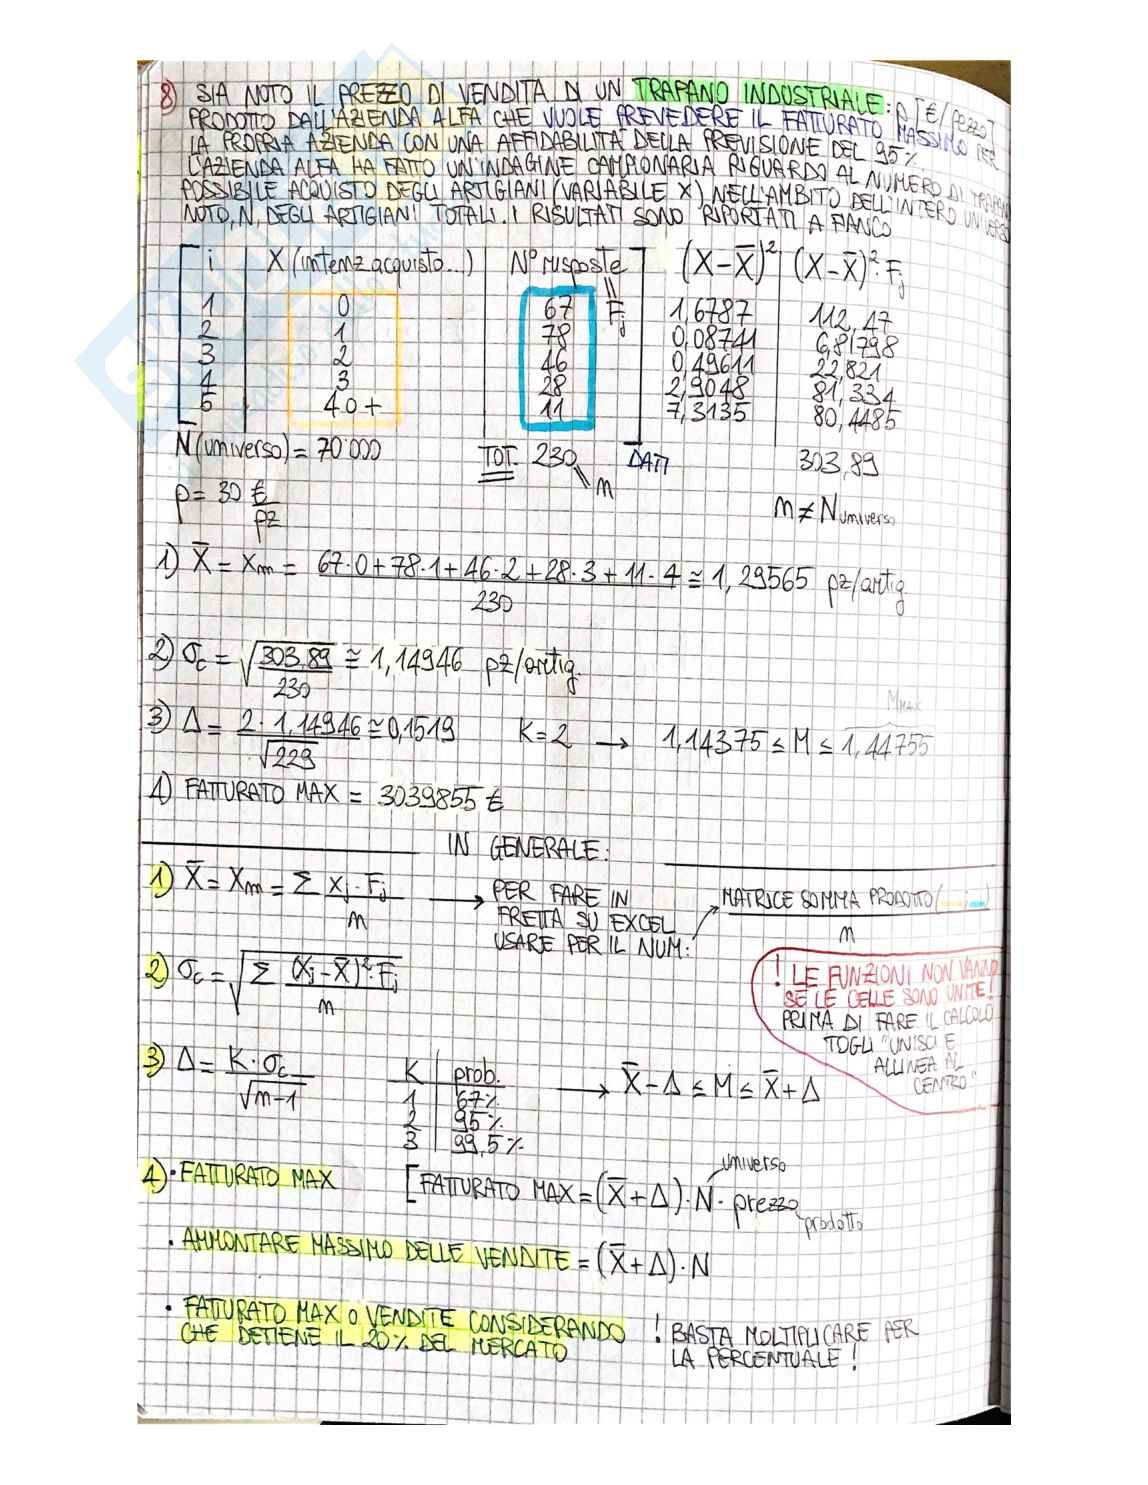 8) SIA NOTO IL PREZZO DI VENDITA DI UN TRAPANO INDUSTRIALE: p [€/pezzo]
PRODOTTO DALL'AZIENDA ALFA CHE VUOLE PREVEDERE IL FATTURATO MASSIMO PER
LA PROPRIA AZIENDA CON UNA AFFIDABILITÀ DELLA PREVISIONE DEL 95%
L'AZIENDA ALFA HA FATTO UN'INDAGINE CAMPIONARIA RIGUARDO AL NUMERO DI TRAPANI
POSSIBILE ACQUISTO DEGLI ARTIGIANI (VARIABILE X) NELL'AMBITO DELL'INTERO UNIVERSO
NOTO, N, DEGLI ARTIGIANI TOTALI. I RISULTATI SONO RIPORTATI A FIANCO
i X (intenz acquisto...) N° risposte (X-X̄)² (X-X̄)²·Fj
= Fj
1 0 67 1,6787 112,47
2 1 78 0,08741 6,81798
3 2 46 0,49611 22,821
4 3 28 2,9048 81,334
5 4 o + 11 7,3135 80,4485
N (universo) = 70'000 TOT. 230 DATI 303,89
n
p = 30 €/pz n ≠ N universo
1) X̄ = Xm = (67·0+78·1+46·2+28·3+11·4)/230 ≅ 1,29565 pz/artig.
2) σc = √(303,89/230) ≅ 1,14946 pz/artig.
M MAX
3) Δ = (2·1,14946)/√229 ≅ 0,1519 K=2 → 1,14375 ≤ M ≤ 1,44755
4) FATTURATO MAX = 3039855 €
IN GENERALE:
1) X̄ = Xm = Σ xj·Fj / n → PER FARE IN
FRETTA SU EXCEL
USARE PER IL NUM: MATRICE SOMMA PRODOTTO (__;__) / n
2) σc = √(Σ (Xj-X̄)²·Fj / n)
! LE FUNZIONI NON VANNO
SE LE CELLE SONO UNITE!
PRIMA DI FARE IL CALCOLO
TOGLI "UNISCI E
ALLINEA AL
CENTRO"
3) Δ = K·σc / √(n-1) K prob. → X̄-Δ ≤ M ≤ X̄+Δ
1 67%
2 95%
3 99,5%
4) · FATTURATO MAX [FATTURATO MAX = (X̄+Δ)·N·prezzo
universo
prodotto
· AMMONTARE MASSIMO DELLE VENDITE = (X̄+Δ)·N
· FATTURATO MAX O VENDITE CONSIDERANDO
CHE DETIENE IL 20% DEL MERCATO
! BASTA MOLTIPLICARE PER
LA PERCENTUALE!